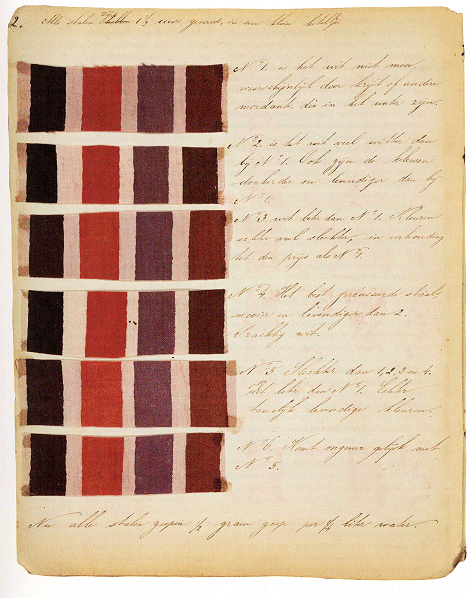 2. Alle stalen 1½ uur geverfd, in een klein keteltje
Nº 1. is het wit niet mooi,
waarschijnlijk door krijt of andere
mordant, die in het water zijn.
Nº 2. is het wit veel witter dan
bij Nº 1. Ook zijn de kleuren
donkerder en levendiger dan bij
Nº 1.
Nº 3 wit beter dan Nº 1. Kleuren
echter veel slechter, in verhouding
tot den prijs als Nº 1.
Nº 4. Het best geverfde staal,
mooier en levendiger dan 2.
Prachtig wit.
Nº 5 Slechter dan 1, 2, 3 en 4.
Wit beter dan Nº 1. Echter
tamelijk levendige kleuren.
Nº 6. Komt ongeveer gelijk met
Nº 5.
Na alle stalen zeepen ½ gram zeep per ¼ liter water.